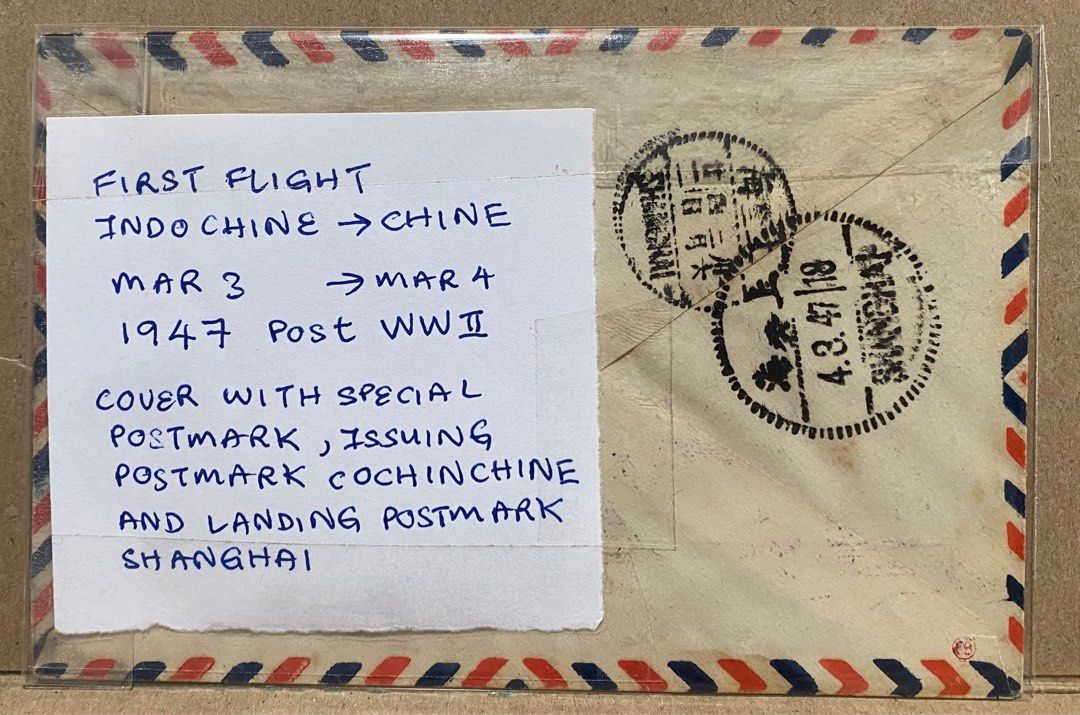 FIRST FLIGHT
INDOCHINE → CHINE
MAR 3 → MAR 4
1947 POST WWII
COVER WITH SPECIAL
POSTMARK, ISSUING
POSTMARK COCHINCHINE
AND LANDING POSTMARK
SHANGHAI
上海
4.3.47|18
SHANGHAI